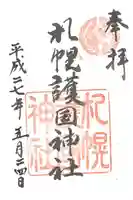 奉拝
札幌護国神社
札幌
神社
平成二七年五月二四日